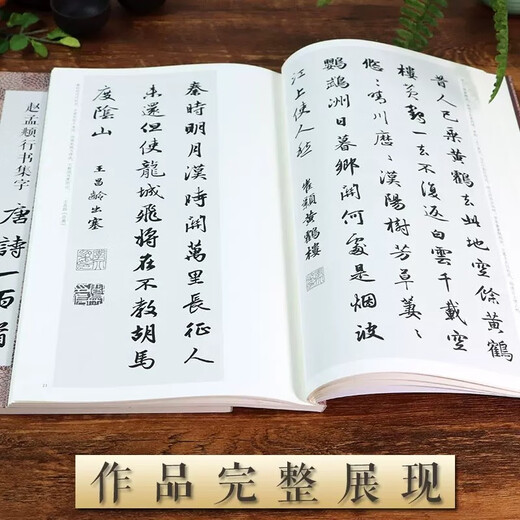 昔人已乘黃鶴去此地空餘黃鶴
樓黃鶴一去不復返白雲千載空
悠〻晴川歷〻漢陽樹芳草萋〻
鸚鵡洲日暮鄉關何處是烟波
江上使人愁
崔顥黃鶴樓
秦時明月漢時關萬里長征人
未還但使龍城飛將在不教胡馬
度陰山
王昌齡出塞
11
赵孟頫行书集字
唐詩一百首
作品完整展现